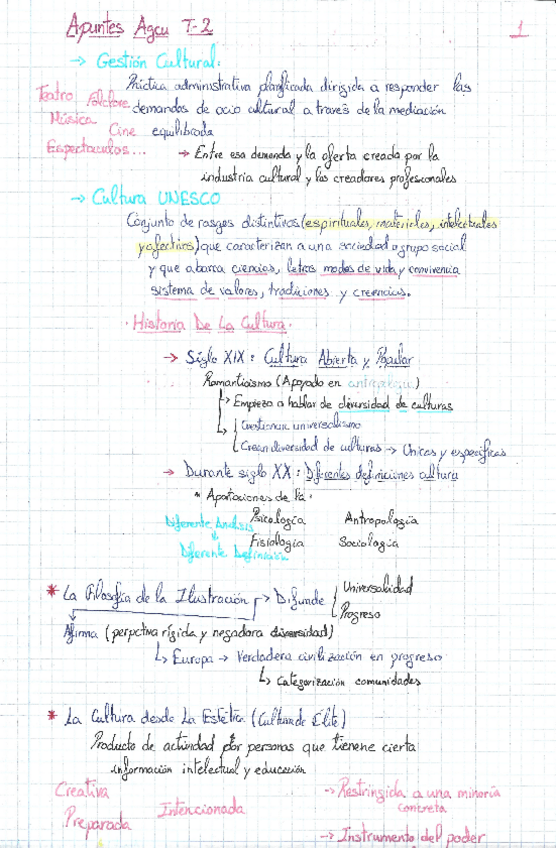 Apuntes Agcu T-2
1
→ Gestión Cultural:
Práctica administrativa planificada dirigida a responder las
demandas de ocio cultural a través de la mediación
equilibrada
Teatro Folclore
Música
Cine
Espectaculos...
→ Entre esa demanda y la oferta creada por la
industria cultural y los creadores profesionales
→ Cultura UNESCO
Conjunto de rasgos distintivos (espirituales, materiales, intelectuales
y afectivos) que caracterizan a una sociedad o grupo social
y que abarca ciencias, letras modos de vida y convivencia
sistema de valores, tradiciones y creencias.
· Historia De La Cultura ·
→ Siglo XIX : Cultura Abierta y Popular
Romanticismo (Apoyado en antropología)
↳ Empieza a hablar de diversidad de culturas
↳ Cuestionar universalismo
Crean diversidad de culturas → Únicas y específicas
→ Durante siglo XX : Diferentes definiciones cultura
* Aportaciones de la :
Psicología Antropología
Fisiología Sociología
Diferente Análisis
Diferente Definición
* La Filosofía de la Ilustración → Difunde
Universalidad
Progreso
Afirma (perpctiva rígida y negadora diversidad)
↳ Europa → Verdadera civilización en progreso
↳ Categorización comunidades
* La Cultura desde La Estética (Cultura de Elite)
Producto de actividad por personas que tienene cierta
información intelectual y educación
Creativa
Intencionada
Preparada
→ Restringida a una minoría
concreta
→ Instrumento del poder